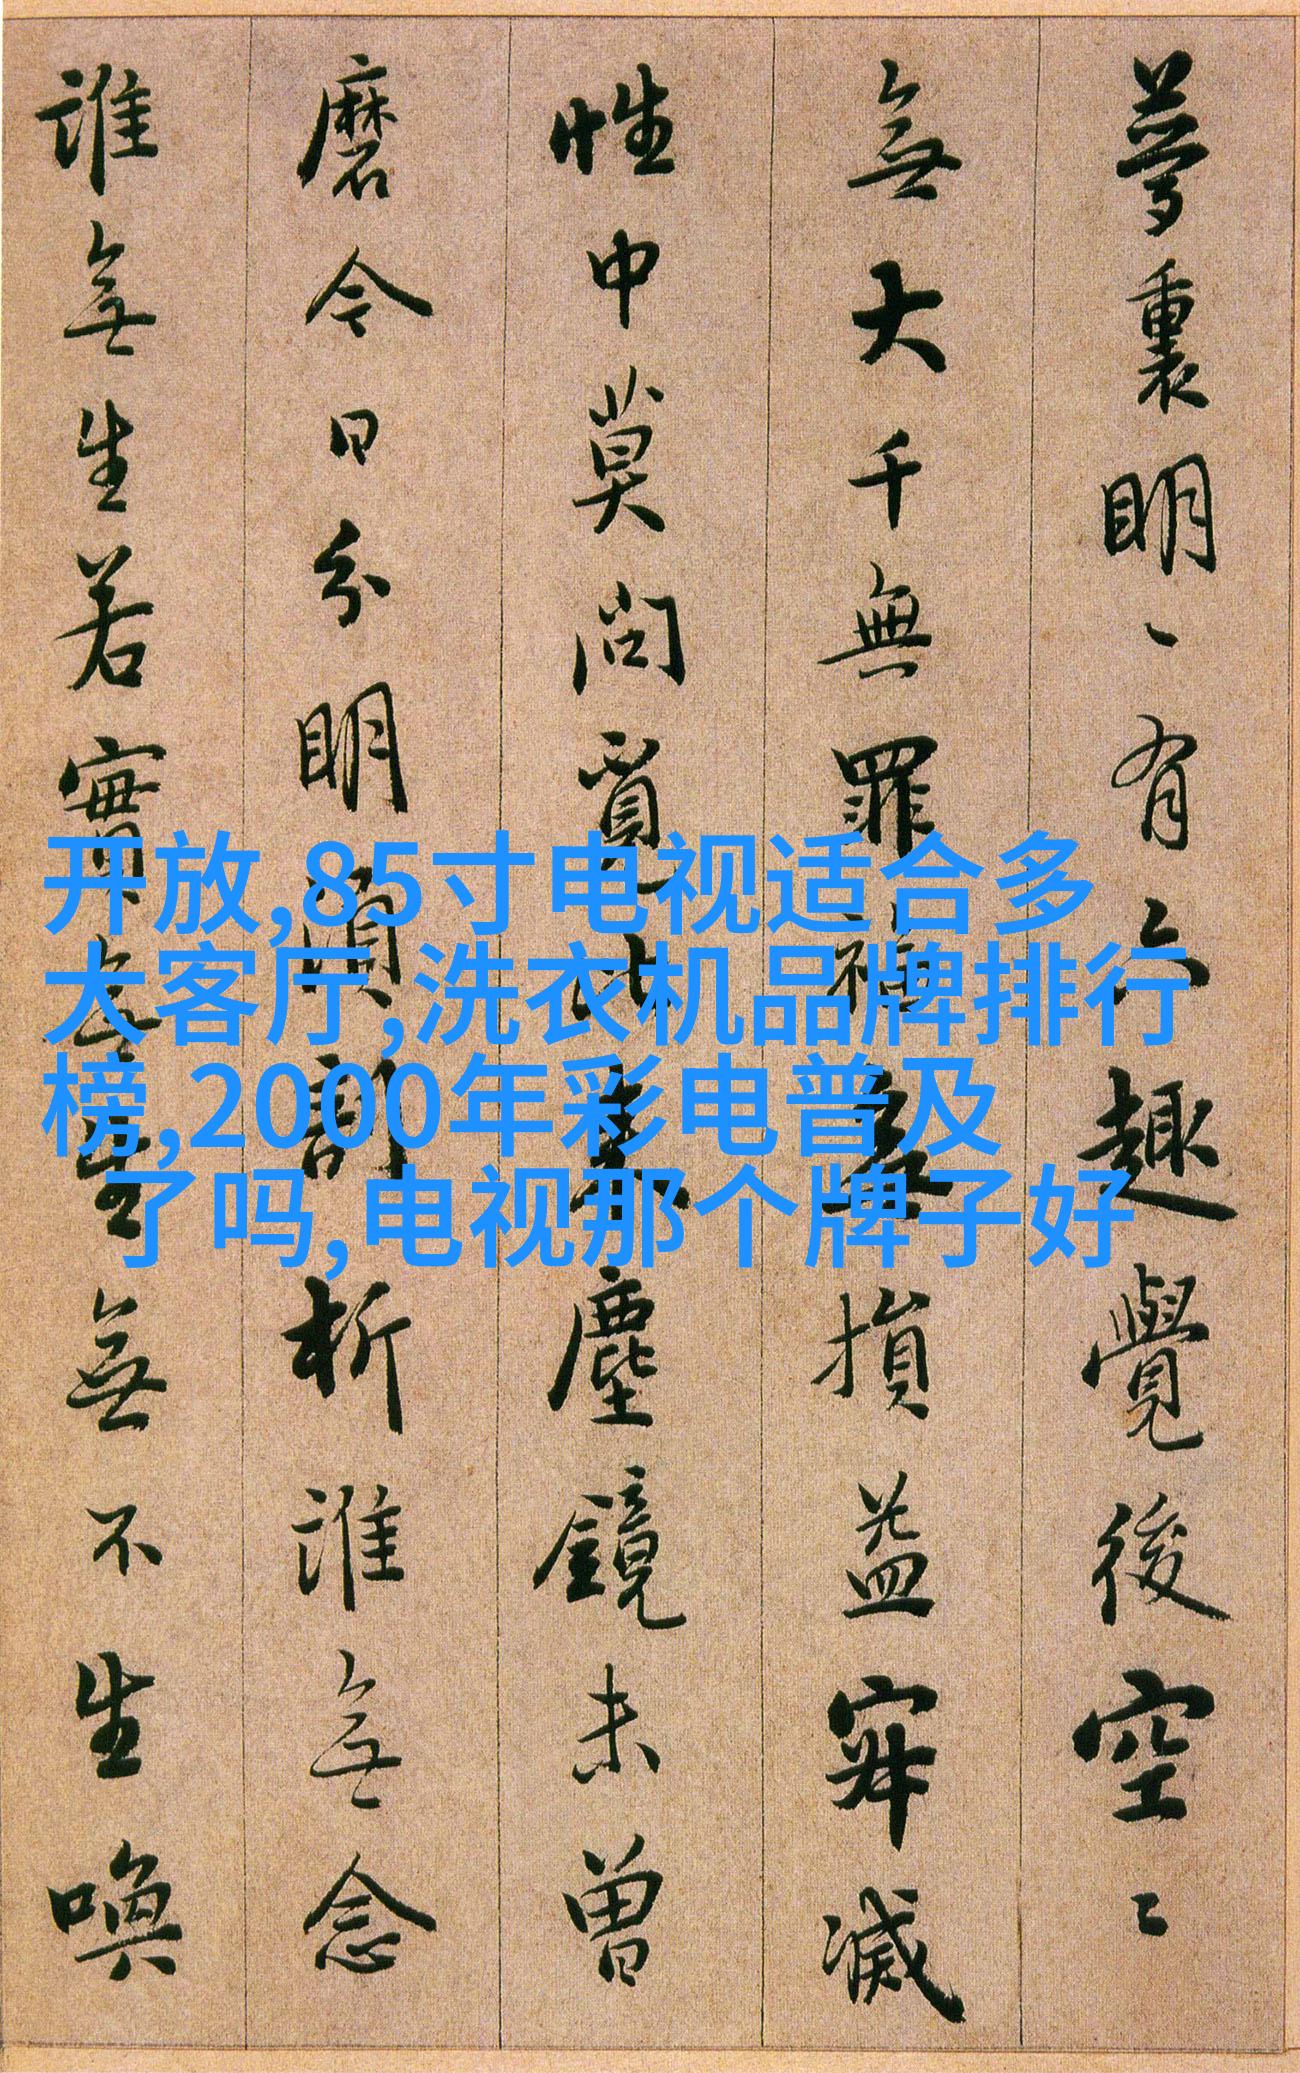 夢裏明〻有六趣覺後空〻
無大千無罪福無損益寂滅
性中莫問覓比來塵鏡未曾
磨今日分明須剖析誰無念
誰無生若實無生無不生喚
开放,85寸电视适合多
大客厅,洗衣机品牌排行
榜,2000年彩电普及
了吗,电视那个牌子好